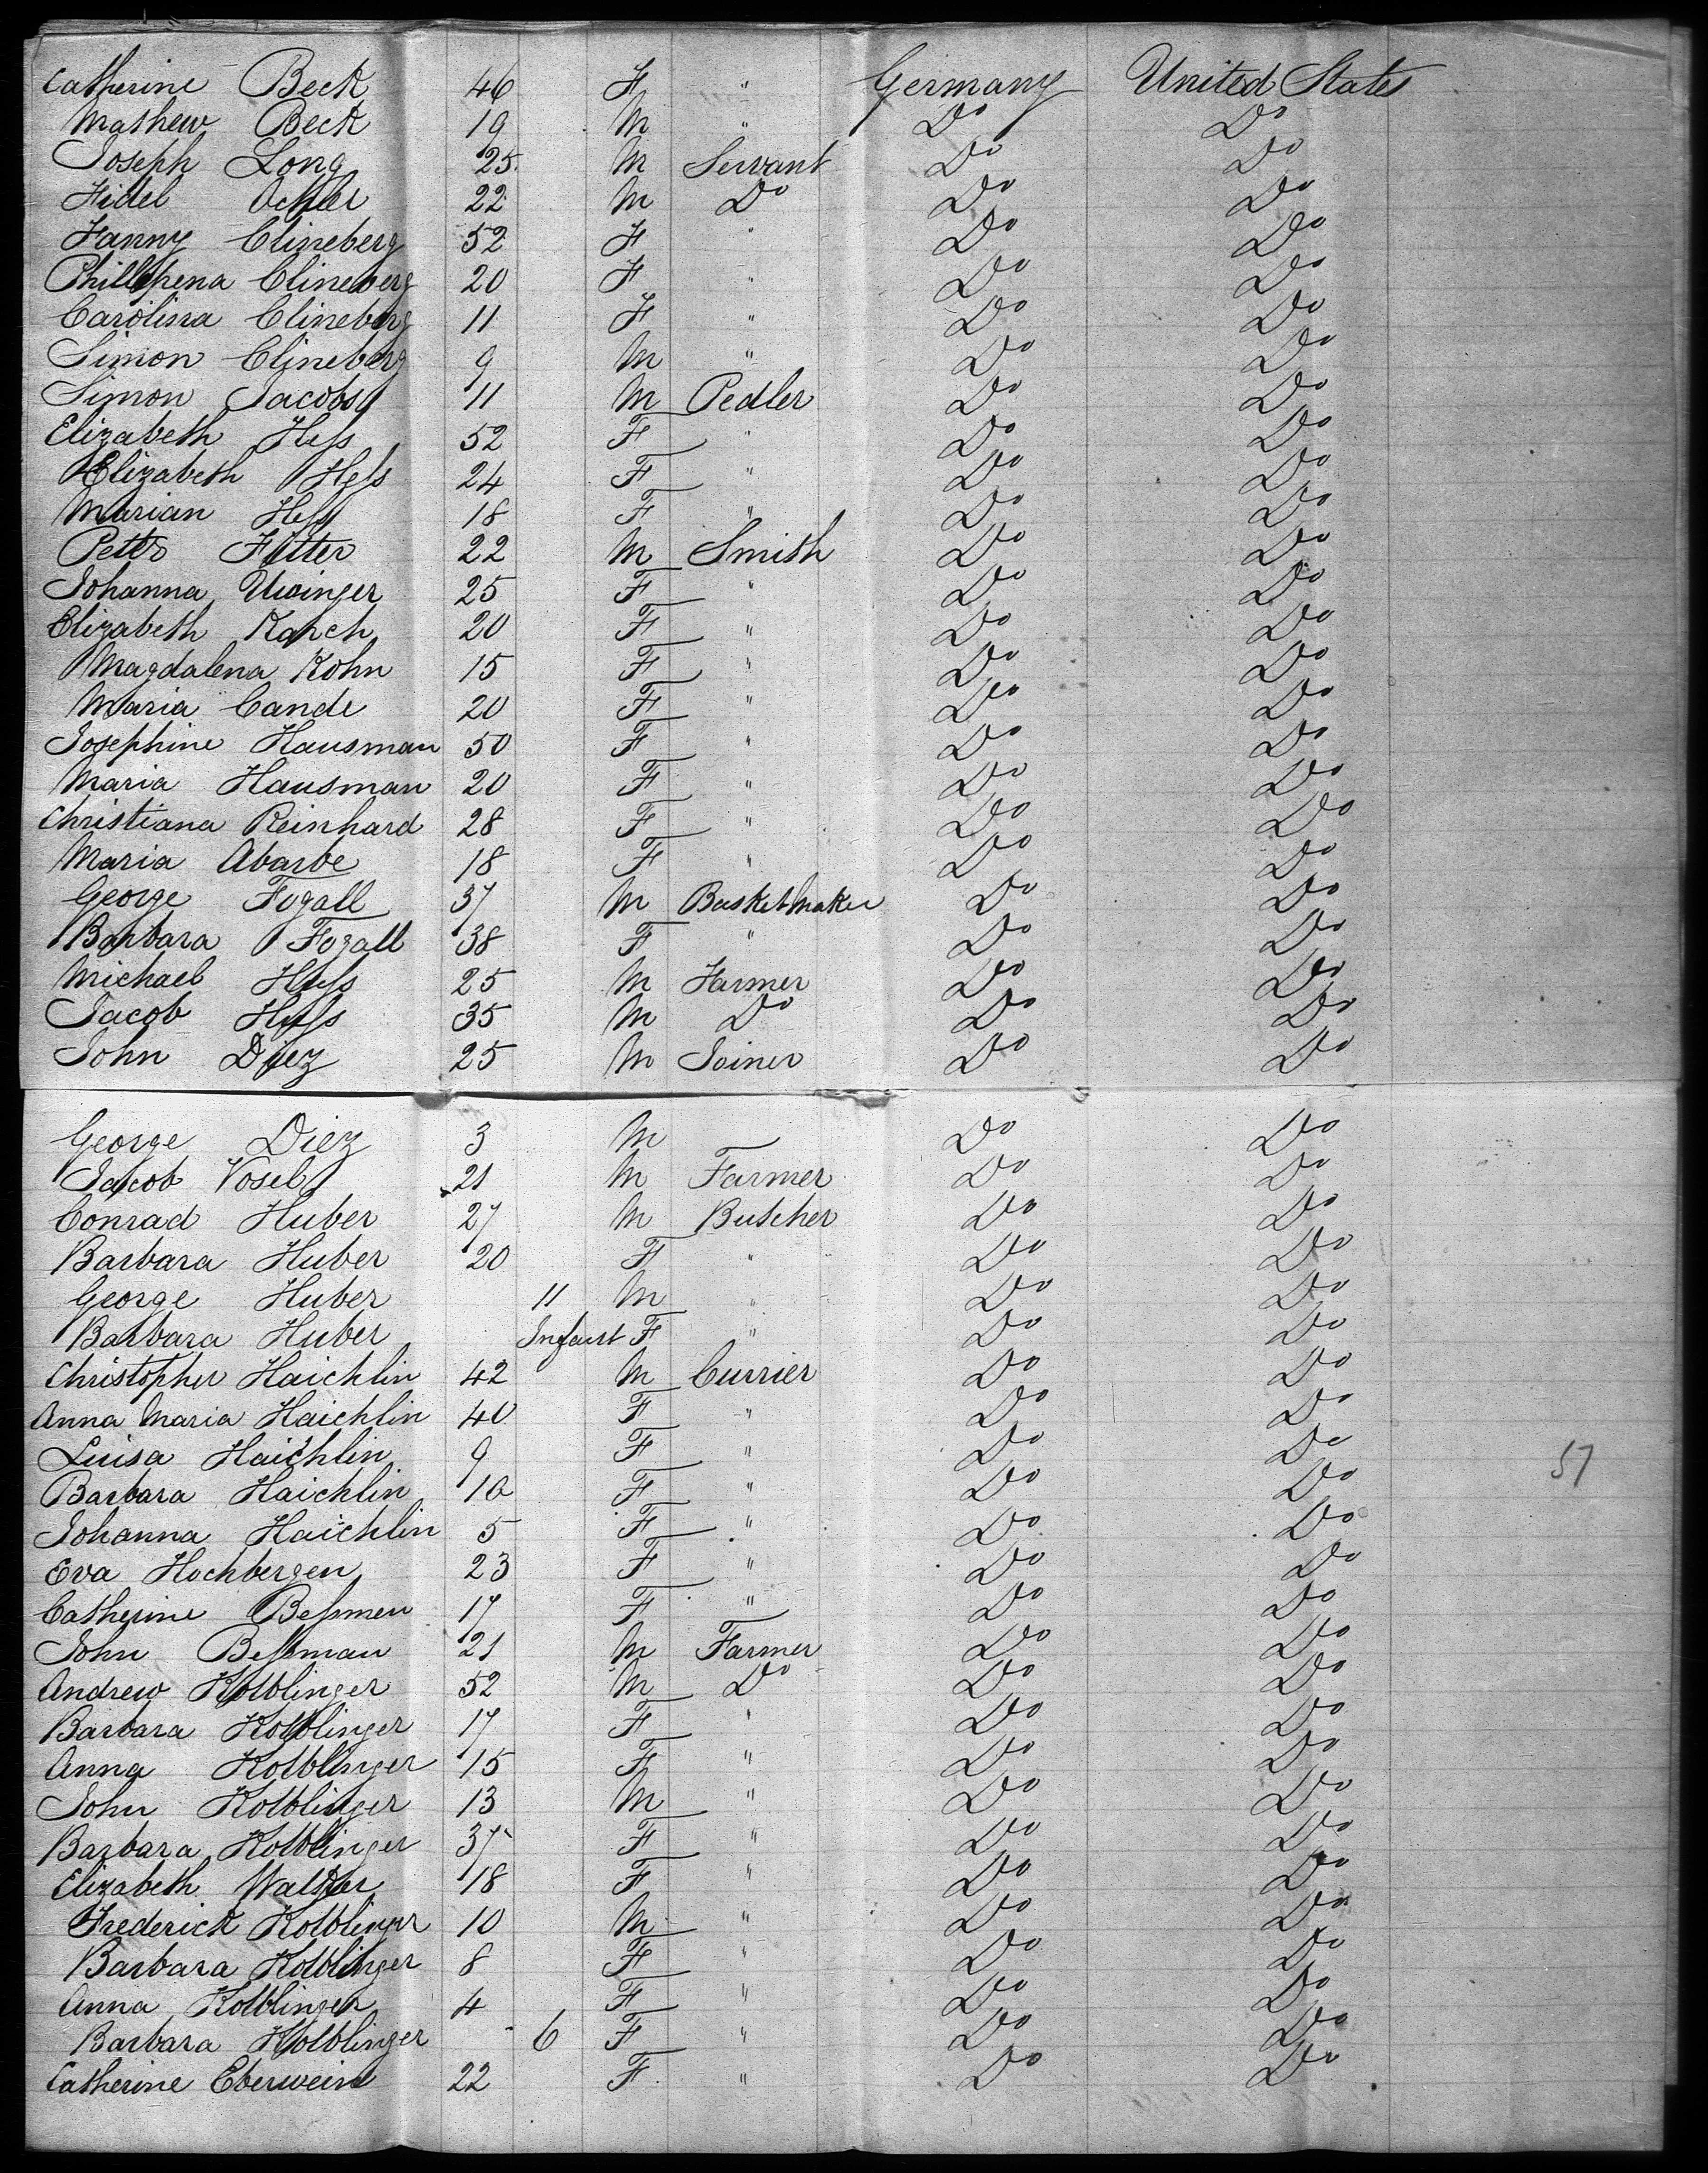 Catherine Beck 46 F " Germany United States
Mathew Beck 19 M " Do Do
Joseph Long 25 M Servant Do Do
Fidel Ochler 22 M Do Do Do
Fanny Clineberg 52 F " Do Do
Phillipena Clineberg 20 F " Do Do
Carolina Clineberg 11 F " Do Do
Simon Clineberg 9 M " Do Do
Simon Jacobsy 11 M Pedler Do Do
Elizabeth Hess 52 F " Do Do
Elizabeth Hess 24 F " Do Do
Marian Hess 18 F " Do Do
Peter Fitter 22 M Smith Do Do
Johanna 25 F " Do Do
Elizabeth Ranch 20 F " Do Do
Magdalena Kohn 15 F " Do Do
Maria Cande 20 F " Do Do
Josephine Hausman 50 F " Do Do
Maria Hausman 20 F " Do Do
Christiana Reinhard 28 F " Do Do
Maria Abarbe 18 F " Do Do
George Fogall 37 M Basketmaker Do Do
Barbara Fogall 38 F " Do Do
Michael Hess 25 M Farmer Do Do
Jacob Hess 35 M Do Do Do
John Diez 25 M Joiner Do Do
George Diez 3 M Do Do
Jacob Vosel 21 M Farmer Do Do
Conrad Huber 27 M Butcher Do Do
Barbara Huber 20 F " Do Do
George Huber 11 M " Do Do
Barbara Huber Infant F " Do Do
Christopher Haichlin 42 M Currier Do Do
Anna Maria Haichlin 40 F " Do Do
Luisa Haichlin 9 F " Do Do
57
Barbara Haichlin 10 F " Do Do
Johanna Haichlin 5 F " Do Do
Eva Hochbergen 23 F " Do Do
Catherine Bessmen 17 F " Do Do
John Bessman 21 M Farmer Do Do
Andrew Kolblinger 52 M Do Do Do
Barbara Kolblinger 17 F " Do Do
Anna Kolblinger 15 F " Do Do
John Kolblinger 13 M " Do Do
Barbara Kolblinger 37 F " Do Do
Elizabeth Walker 18 F " Do Do
Frederick Kolblinger 10 M " Do Do
Barbara Kolblinger 8 F " Do Do
Anna Kolblinger 4 F " Do Do
Barbara Kolblinger 6 F " Do Do
Catherine Eberwein 22 F " Do Do